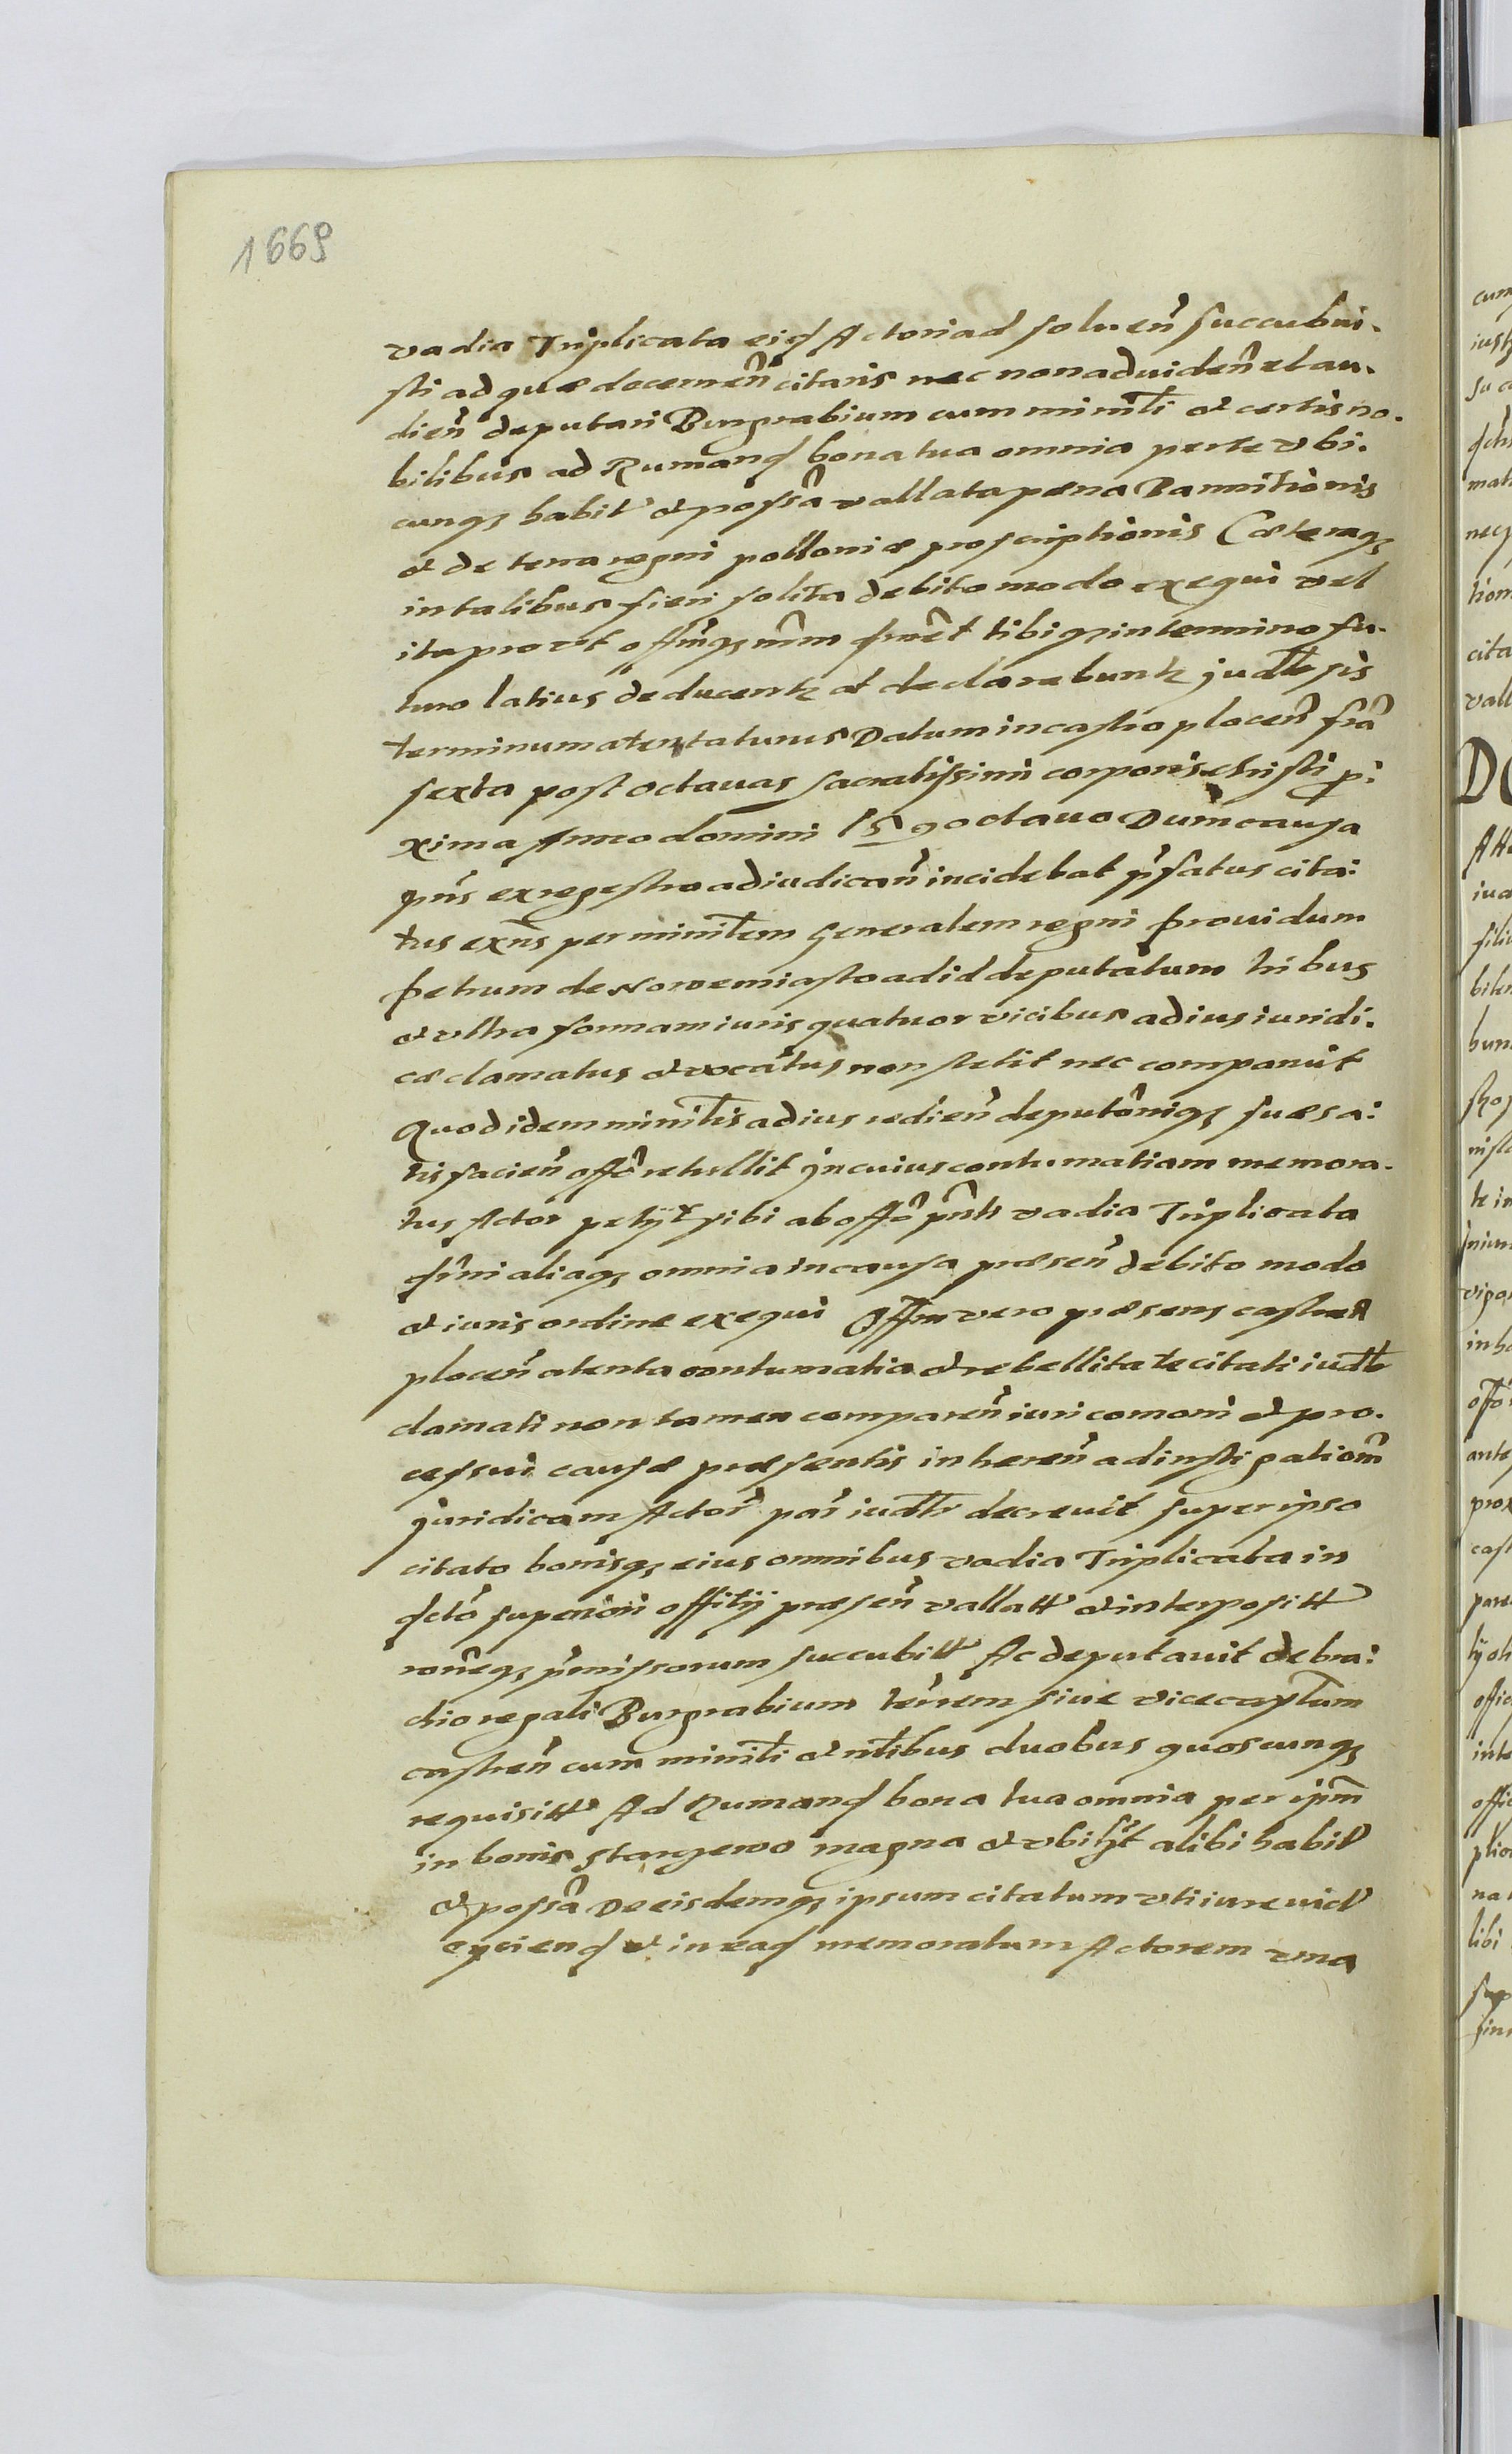 1669
vadia Triplicata eid Actori ad soluen̄ succubui.
sti ad quæ decernen̄ citaris nec non ad viden̄ et au.
dien̄ deputari Burgrabium cum minilī et certis no.
bilibus ad Rumand bona tua omnia per te vbi.
cunqꝫ habit et possā vallata pæna Bannitionis
et de terra regni polloniæ proscriptionis Cæteraqꝫ
in talibus fieri solita debito modo exequi vel
ita pro vt offmqꝫ tibiqꝫ in termino fu.
turo latius deducentꝫ et declarabuntꝫ judlr sis
terminum attentaturus Datum in castro plocen̄ fr̄a
sexta post octauas sacratissimi corporis christi p:
xima Anno domini 15 9octauo Dum causa
pn̄s ex regestro adiudican̄ incidebat pr̄fatus cita:
tus exn̄s per minilem Generalem regni prouidum
petrum de Nowemiasto ad id deputatum tribus
et vltra formam iuris quatuor vicibus ad ius iuridi.
cæ clamatus et vocatus non stetit nec comparuit
Quod idem minilis ad ius redien̄ deputōniqꝫ suæ sa:
tisfacien̄ offō retullit jn cuius contumatiam memora.
tus Actor petijt sibi ab offō pn̄ti vadia Triplicata
aliaqꝫ omnia in causa præsen̄ debito modo
et iuris ordine exequi Offm vero præsens castren̄
plocen̄ atenta contumatia et rebellitate citati iudlr
clamati non tamen comparen̄ iuri comoni et pro.
cessui causæ præsentis inheren̄ ad instigationē
juridicam Actor par̄ iudlr decreuit super ipso
citato bonisqꝫ eius omnibus vadia Triplicata in
dctō superiori offitij præsen̄ vallatt et interpositt
ronēqꝫ pr̄missorum succubitt Ac deputauit de bra:
chio regali Burgrabium tenrem siue vicecaptm
castren̄ cum minili et nlibus duobus quoscunqꝫ
requisitt Ad Rumand bona tua omnia per ipm̄
in bonis magna et vbi alibi habit
et possā De eisdemqꝫ ipsum citatum vti iure vict
eyciend et in ead memoratum Actorem vna